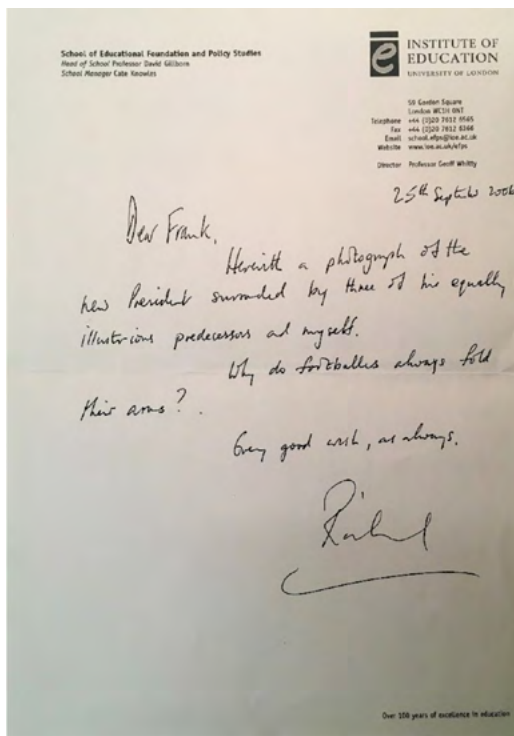 School of Educational Foundation and Policy Studies
Head of School Professor David Gillborn
School Manager Cate Knowles
e
INSTITUTE OF
EDUCATION
UNIVERSITY OF LONDON
59 Gordon Square
London WC1H 0NT
Telephone +44 (0)20 7612 6565
Fax +44 (0)20 7612 6366
Email school.efps@ioe.ac.uk
Website www.ioe.ac.uk/efps
Director Professor Geoff Whitty
25th September 2006
Dear Frank,
Herewith a photograph of the
new President surrounded by three of his equally
illustrious predecessors and myself.
Why do footballers always fold
their arms?.
Every good wish, as always.
Richard
Over 100 years of excellence in education